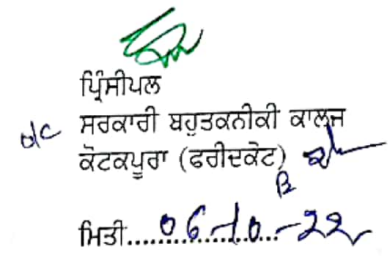 ਪ੍ਰਿੰਸੀਪਲ
o/c ਸਰਕਾਰੀ ਬਹੁਤਕਨੀਕੀ ਕਾਲਜ
ਕੋਟਕਪੂਰਾ (ਫਰੀਦਕੋਟ)
ਮਿਤੀ....06-10-22